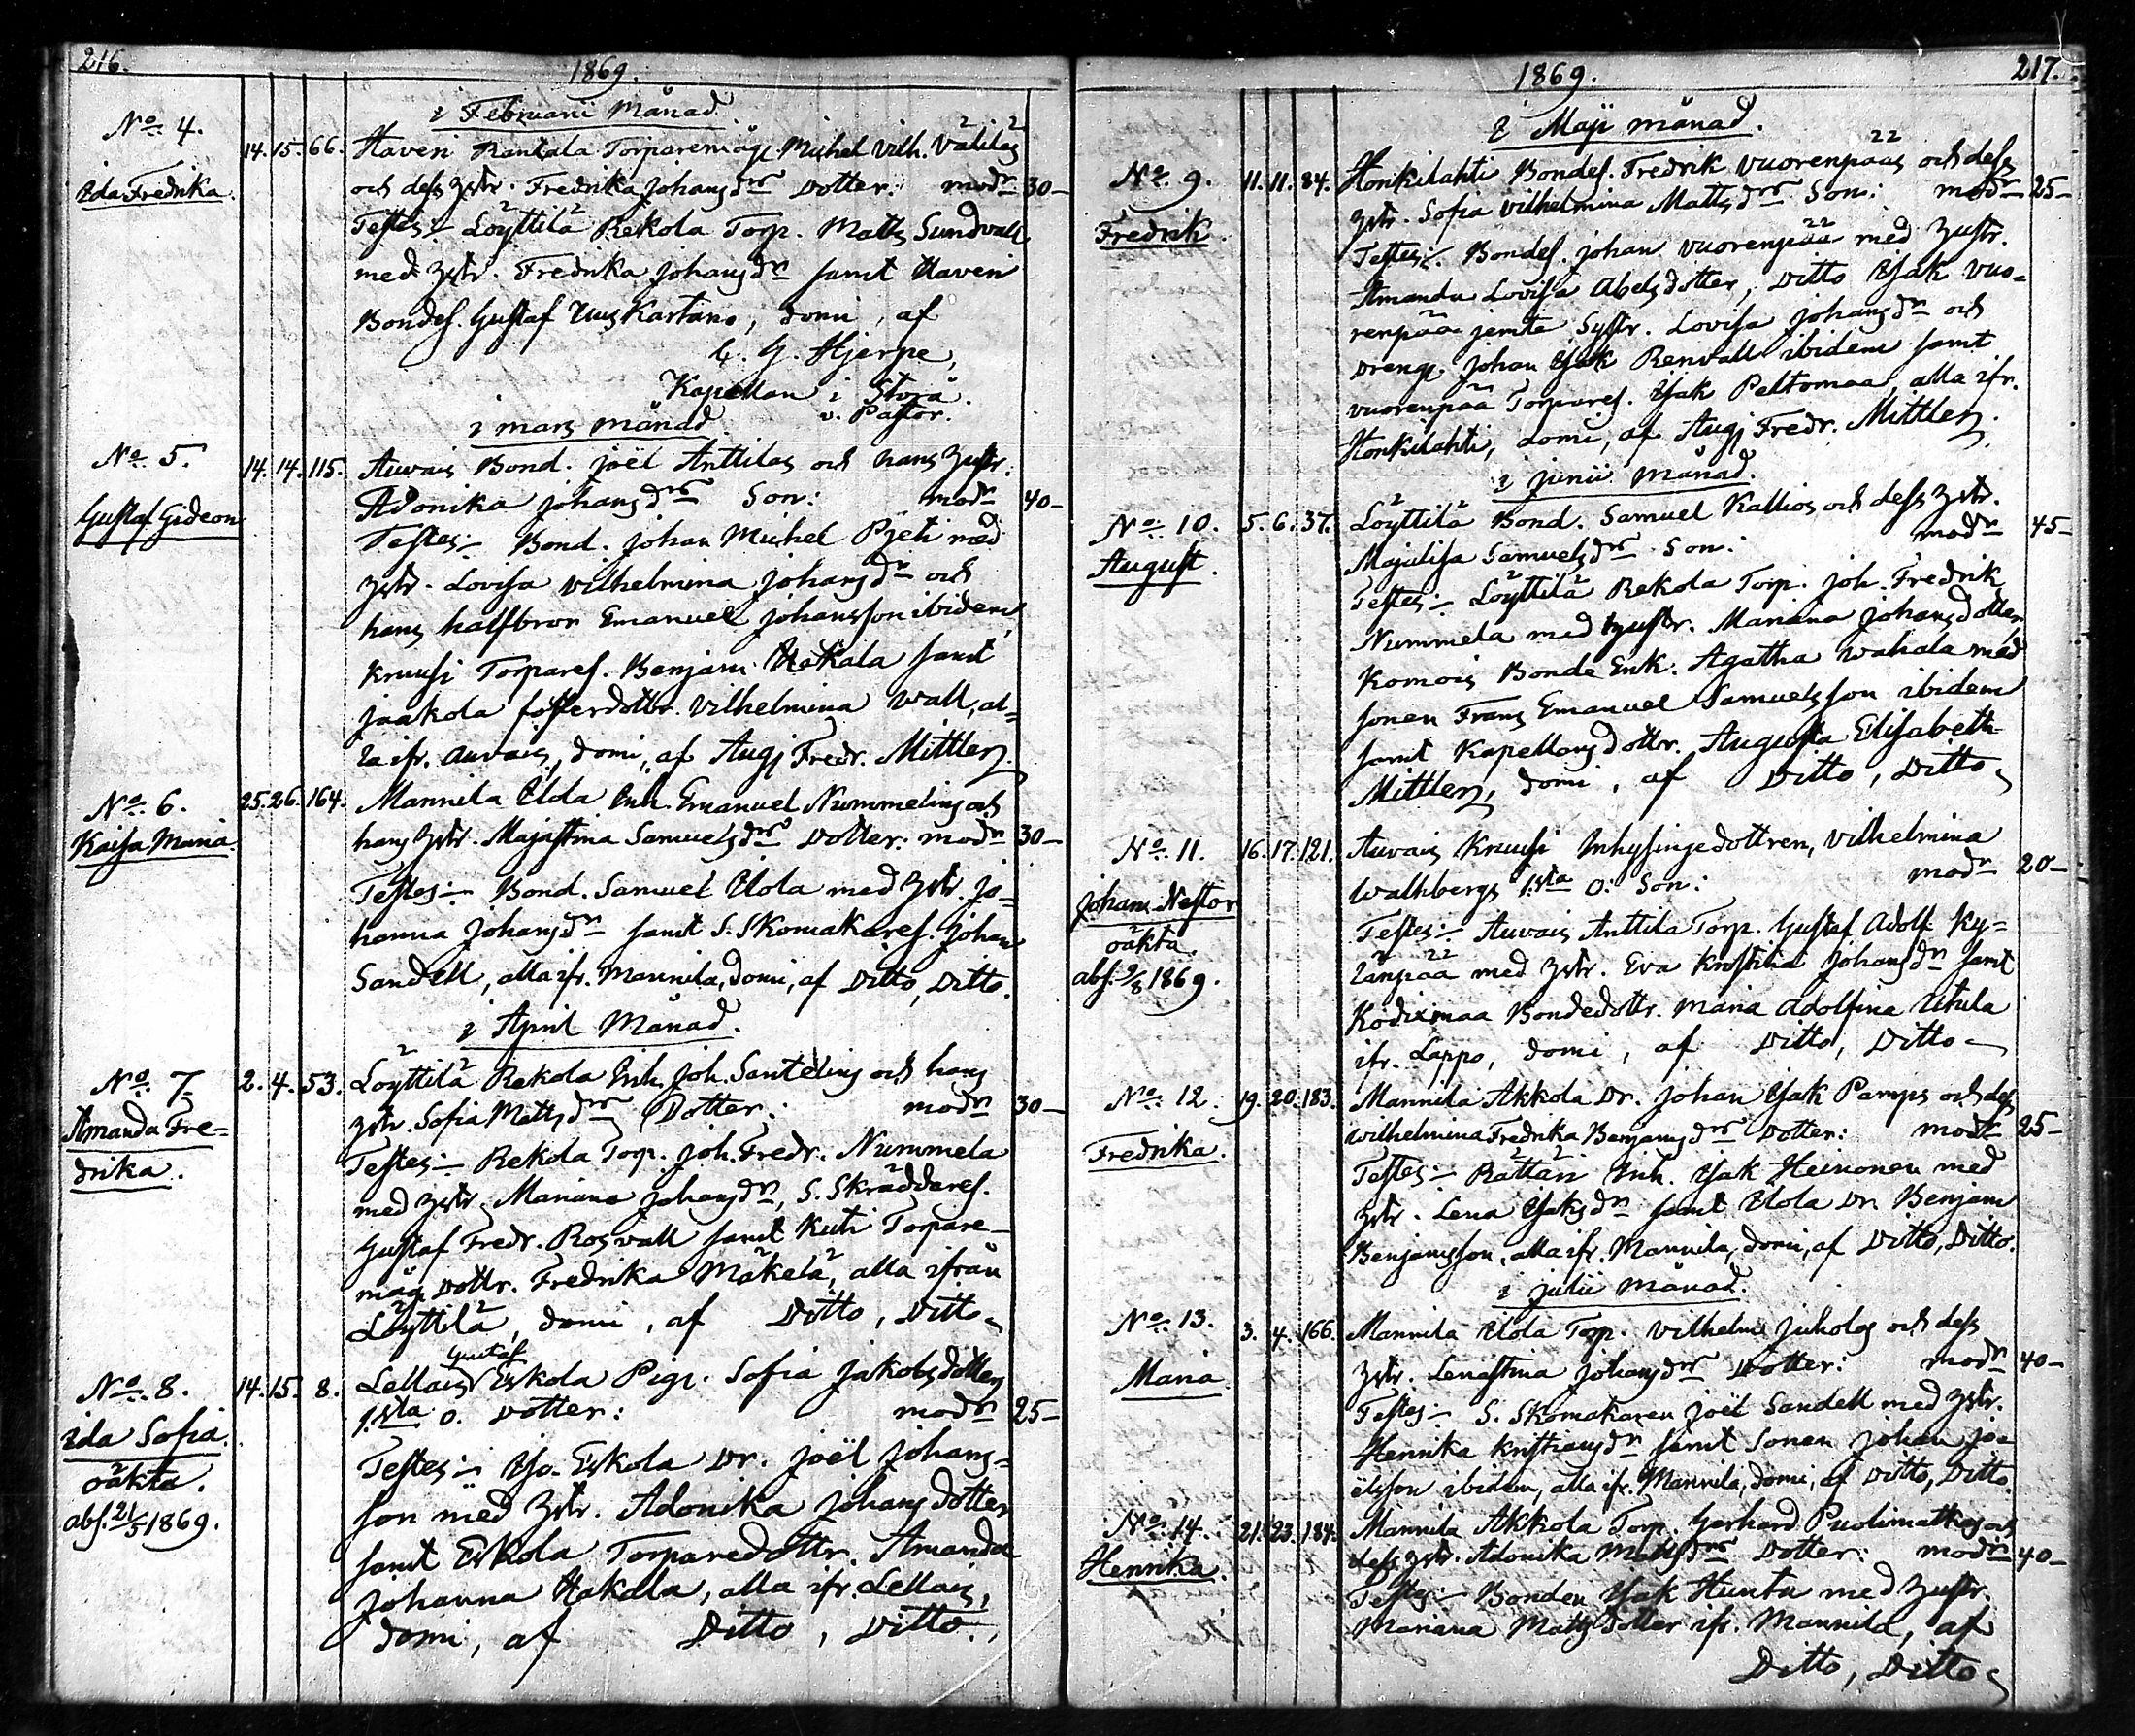 216.
1869.
i Februarii Månad.
No. 4. 14. 15. 66. Haveri Rantala Torparemåg Michel Vilh. Väliläs
Ida Fredrika. och dess hstr. Fredrika Johansdrs Dotter: modr 30-
Testes:- Löyttilä Rekola Torp. Matts Sundvall
med hstr. Fredrika Johansdr samt Haveri
Bondes. Gustaf Uus Kartano, domi, af
C. G. Hjerpe,
Kapellan i Storå.
v. Pastor.
i mars månad
No. 5. 14. 14. 115. Auvais Bond. Joël Anttilas och hans hustr.
Gustaf Gideon Adonika Johansdrs Son: modr 40-
Testes:- Bond. Johan Michel Pjeti med
hstr. Lovisa Vilhelmina Johansdr och
hans halfbror Emanuel Johansson ibidem,
Kruusi Torpares. Benjam: Hakala samt
Jaakola fosterdottr. Vilhelmina Wall, al=
la ifr. Auvais, domi, af Augj Fredr. Mittler.
No. 6. 25. 26. 164. Mannila Elola Inh. Emanuel Nummelins och
Kaisa Maria. hans hstr. Majastina Samuelsdrs Dotter: modr 30-
Testes:- Bond. Samuel Elola med hstr. Jo=
hanna Johansdr samt S. Skomakares. Johan
Sandell, alla ifr. Mannila, domi, af Ditto, Ditto.
i April Månad.
No. 7. 2. 4. 53. Löyttilä Rekola Inh. Joh. Santelins och hans
Amanda Fre= hstr. Sofia Mattsdrs Dotter: modr 30-
drika. Testes:- Rekola Torp. Joh. Fredr. Nummela
med hstr. Mariana Johansdr, S. Skräddares.
Gustaf Fredr. Rosvall samt Kuti Torpare-
måg Dottr. Fredrika Mäkelä, alla ifrån
Löyttilä, domi, af Ditto, Ditto-
Gustaf
No. 8. 14. 15. 8. Lellais Eskola Pig. Sofia Jakobsdotters
Ida Sofia. 1.sta o. Dotter: modr 25-
oäkta. Testes:- Yso-Eskola Dr. Joël Johans=
abs. 21/5 1869. son med hstr. Adonika Johansdotter
samt Eskola Torparedottr. Amanda
Johanna Hakala, alla ifr. Lellais,
domi, af Ditto, Ditto.
1869.
217.
i Maji månad.
No. 9. 11. 11. 84. Honkilahti Bondes. Fredrik Vuorenpääs och dess
Fredrik. hstr. Sofia Vilhelmina Mattsdrs Son: modr 25-
Testes:- Bondes. Johan Vuorenpää med hustr.
Amanda Lovisa Abelsdotter, Ditto Isak Vuo=
renpää jemte Systr. Lovisa Johansdr och
Dreng. Johan Isak Renvall ibidem samt
Vuorenpää Torpares. Isak Peltomaa, alla ifr.
Honkilahti, domi, af Augj Fredr. Mittler.
i Junii Månad.
No. 10. 5. 6. 37. Löyttilä Bond. Samuel Kallios och dess hstr.
August. Majalisa Samuelsdrs Son: modr 45-
Testes:- Löyttilä Rekola Torp. Joh. Fredrik
Nummela med hustr. Mariana Johansdotter,
Komois Bonde Enk. Agatha Wahala med
sonen Frans Emanuel Samuelsson ibidem
samt Kapellansdottr. Augusta Elisabeth
Mittler, domi, af Ditto, Ditto-
No. 11. 16. 17. 121. Auvais Kruusi Inhysingedottren, Vilhelmina
Johan Nestor Wallbergs 1.sta o. Son: modr 20-
oäkta Testes:- Auvais Anttila Torp. Gustaf Adolf Ky=
abs. 9/8 1869. länpää med hstr. Eva Kristina Johansdr samt
Kodixmaa Bondedottr. Maria Adolfina Ukula
ifr. Lappo, domi, af Ditto, Ditto-
No. 12. 19. 20. 183. Mannila Akkola Dr. Johan Isak Pamps och dess
Fredrika. Wilhelmina Fredrika Benjamsdrs Dotter: modr 25-
Testes:- Rättäri Inh. Isak Heinonen med
hstr. Lena Isaksdr samt Elola Dr. Benjam
Benjamsson, alla ifr. Mannila, domi, af Ditto, Ditto.
i Julii månad.
No. 13. 3. 4. 166. Mannila Elola Torp. Vilhelm Juholas och dess
Maria. hstr. Lenastina Johansdrs Dotter: modr 40-
Testes:- S. Skomakaren Joël Sandell med hstr.
Henrika Kristiansdr samt Sonen Johan Jo-
ëlsson ibidem, alla ifr. Mannila, domi, af Ditto, Ditto.
No. 14. 21. 23. 184. Mannila Akkola Torp. Gerhard Puolimatkas och
Henrika. dess hstr. Adonika Mattsdrs Dotter: modr 40-
Testes:- Bonden Isak Hunta med hustr.
Mariana Mattsdotter ifr. Mannila, af
Ditto, Ditto